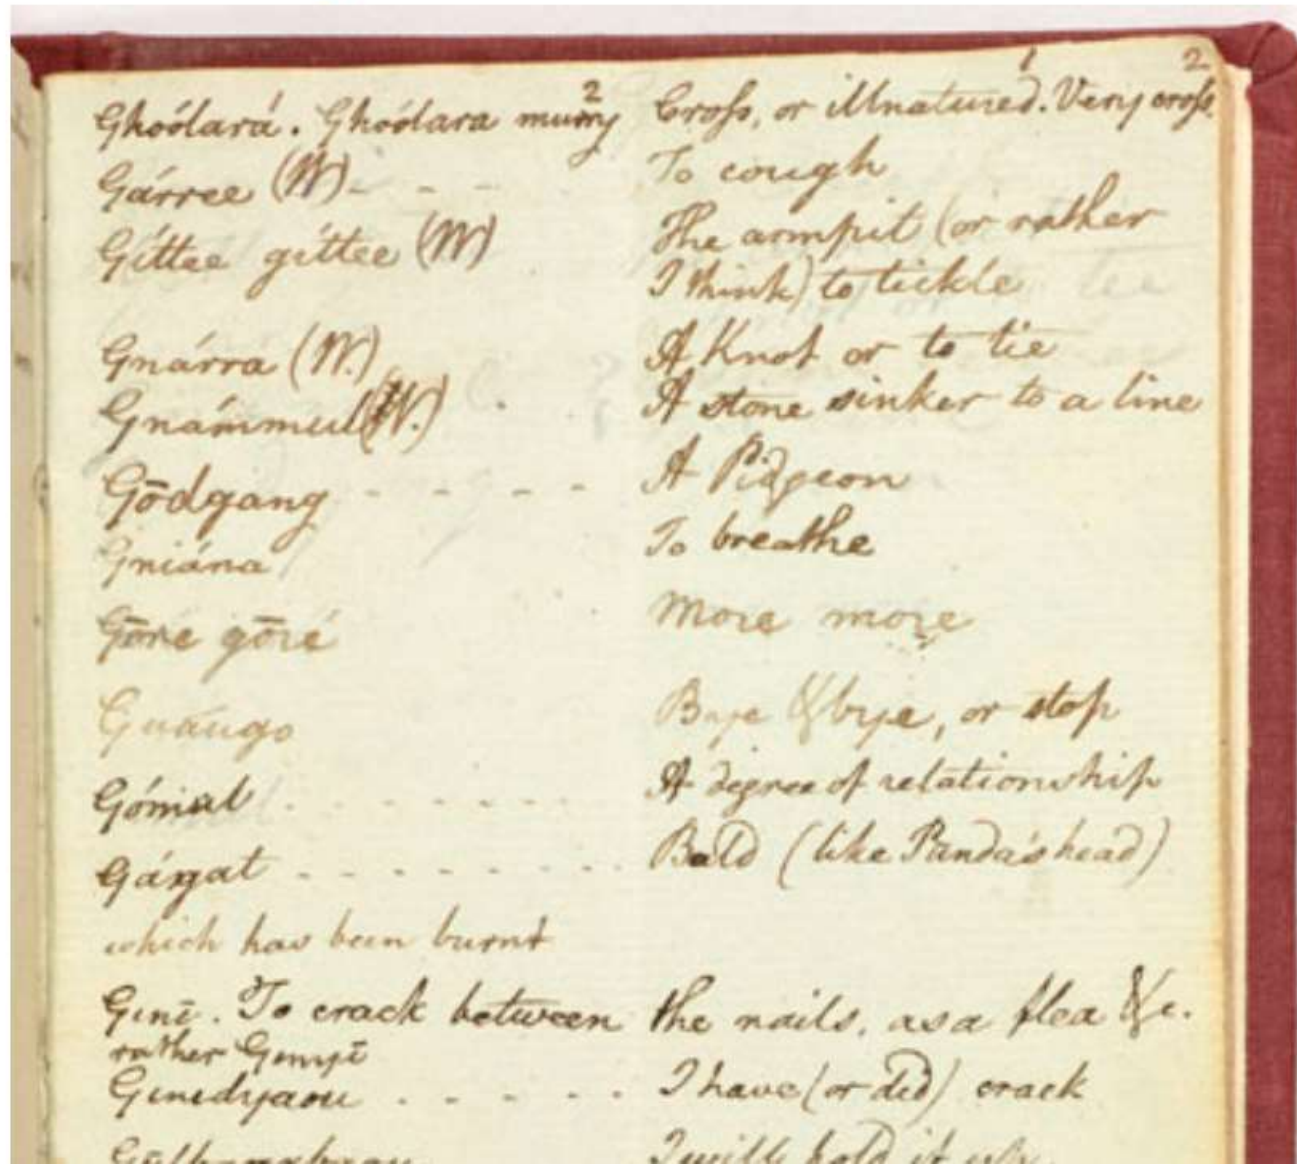 1 2
Ghoólará. Ghoólara murry 2 Cross, or illnatured. Very cross.
Gárree (W) - - - To cough
Gíttee gíttee (W) The armpit (or rather
I think) to tickle
Gnárra (W.) A Knot or to tie
Gnámmul (W.) A stone sinker to a line
Gōdgang - - - - - A Pidgeon
Gniána To breathe
Gōre gōré More more
Guáugo Bye & bye, or stop
Gómul - - - - - - - A degree of relationship
Gáŋat - - - - - - - Bald (like Panda's head)
which has been burnt
Genē. To crack between the nails, as a flea &c.
rather
Genedyaou - - - - - I have (or did) crack
I will hold it